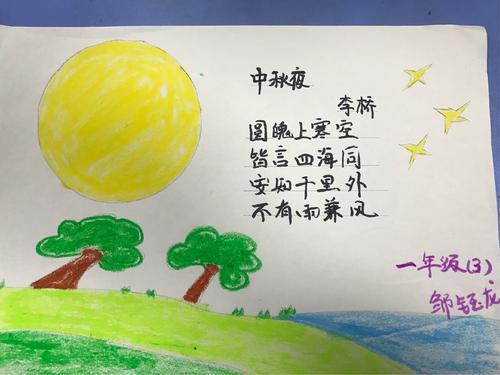 中秋夜
李桥
圆魄上寒空
皆言四海同
安知千里外
不有雨兼风
一年级(3)
邹钰龙